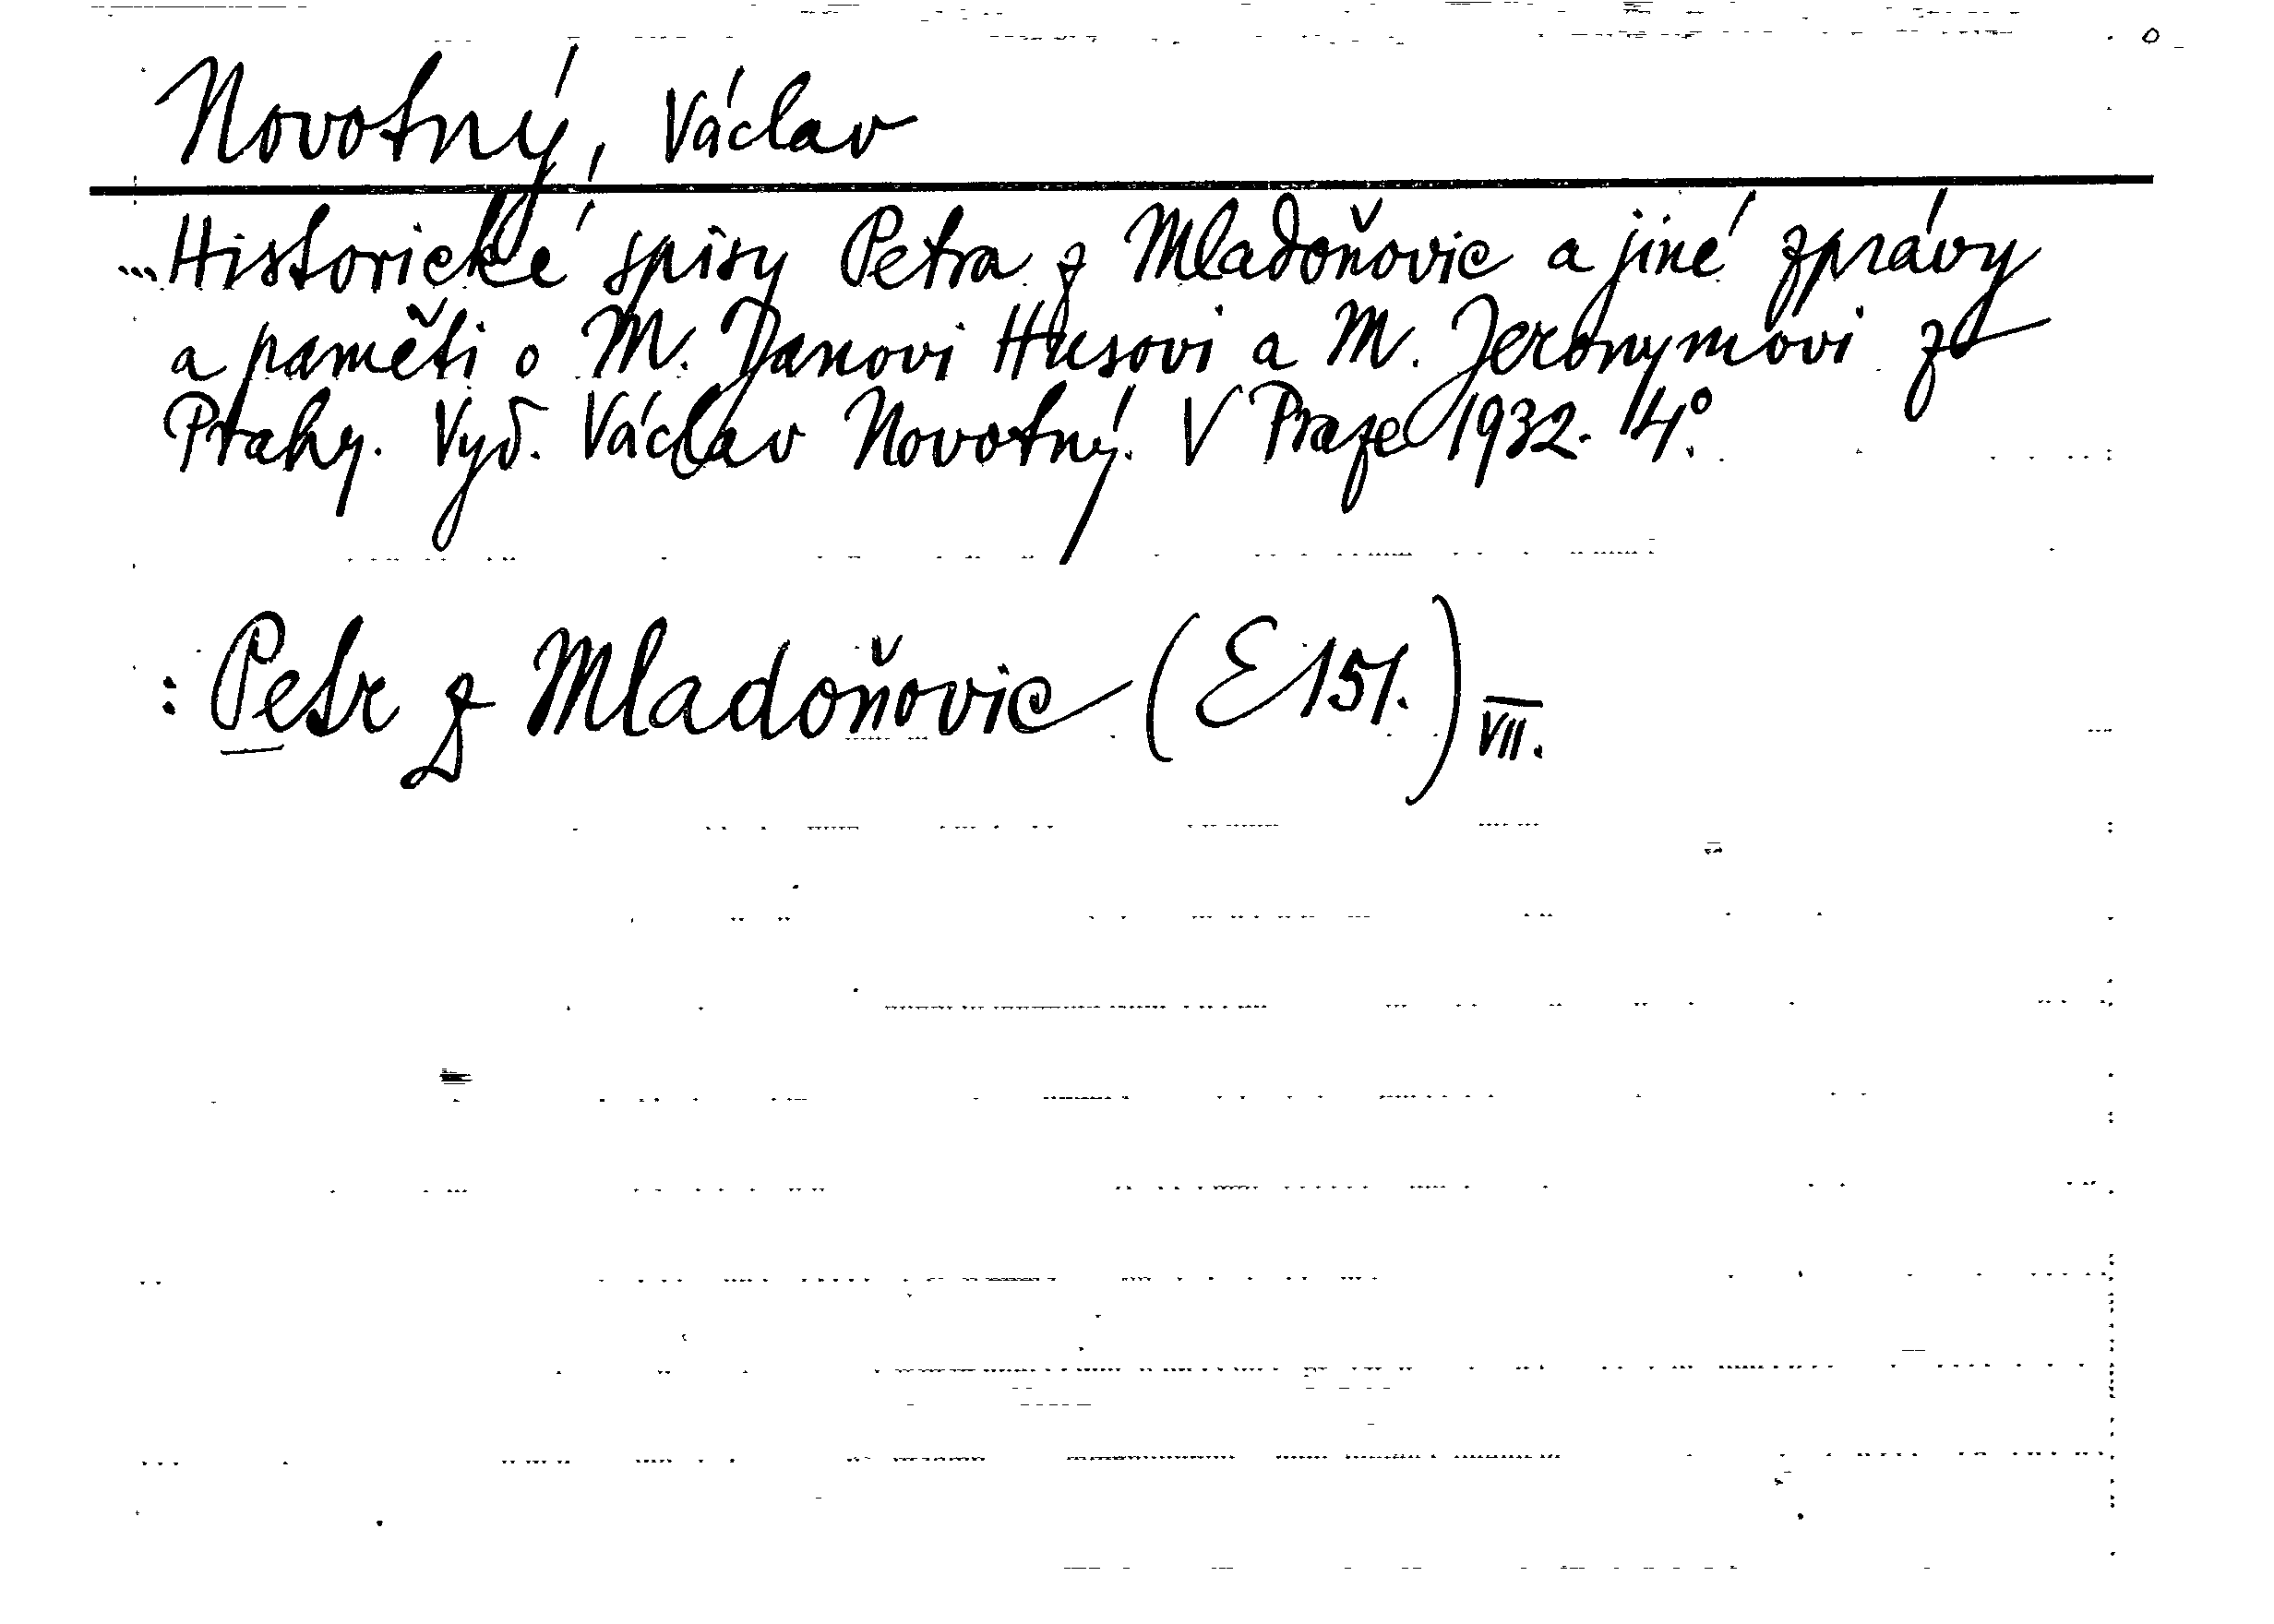 Novotný, Václav
...Historické spisy Petra z Mladoňovic a jiné zprávy
a paměti o M. Janovi Husovi a M. Jeronymovi z
Prahy. Vyd. Václav Novotný. V Praze 1932. 4°.
: Petr z Mladoňovic (E 151.) VII.